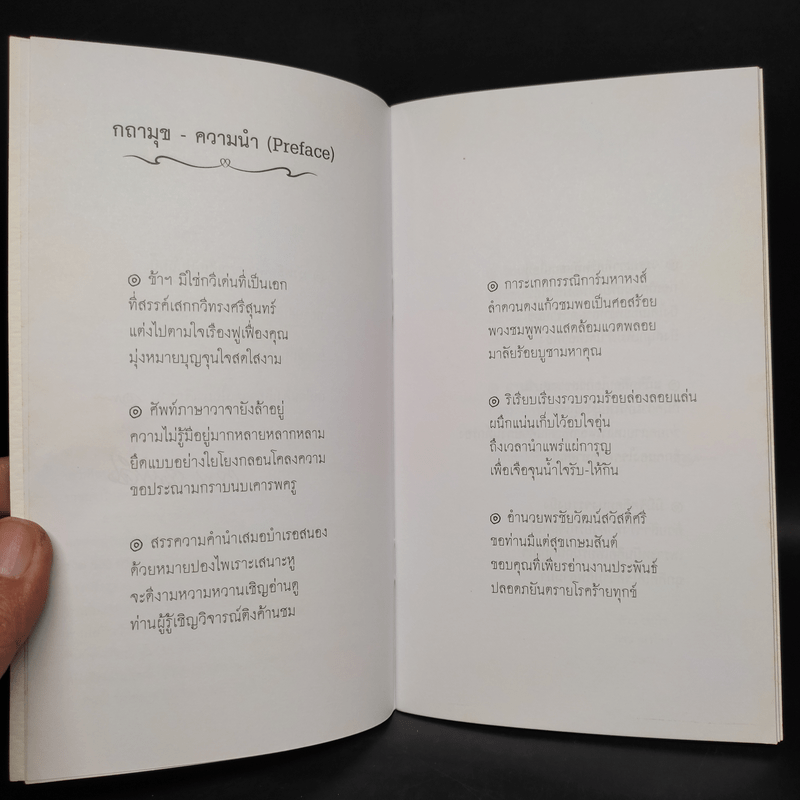 กถามุข - ความนำ (Preface)
๏ ข้าฯ มิใช่กวีเด่นที่เป็นเอก
ที่สรรค์เสกกวีทรงศรีสุนทร์
แต่งไปตามใจเรืองฟูเฟื่องคุณ
มุ่งหมายบุญจุนใจสดใสงาม
๏ ศัพท์ภาษาวาจายังล้าอยู่
ความไม่รู้มีอยู่มากหลายหลากหลาม
ยึดแบบอย่างใยโยงกลอนโคลงความ
ขอประณามกราบนบเคารพครู
๏ สรรความคำนำเสมอบำเรอสนอง
ด้วยหมายปองไพเราะเสนาะหู
จะดีงามหวามหวานเชิญอ่านดู
ท่านผู้รู้เชิญวิจารณ์ติงค้านชม
๏ การะเกดกรรณิการ์มหาหงส์
ลำดวนดงแก้วชมพอเป็นศอสร้อย
พวงชมพูพวงแสดล้อมแวดพลอย
มาลัยร้อยบูชามหาคุณ
๏ ริเรียบเรียงรวบรวมร้อยล่องลอยแล่น
ผนึกแน่นเก็บไว้อบใจอุ่น
ถึงเวลานำแพร่แผ่การุญ
เพื่อเจือจุนน้ำใจรับ-ให้กัน
๏ อำนวยพรชัยวัฒน์สวัสดิ์ศรี
ขอท่านมีแต่สุขเกษมสันต์
ขอบคุณที่เพียรอ่านงานประพันธ์
ปลอดภยันตรายโรคร้ายทุกข์